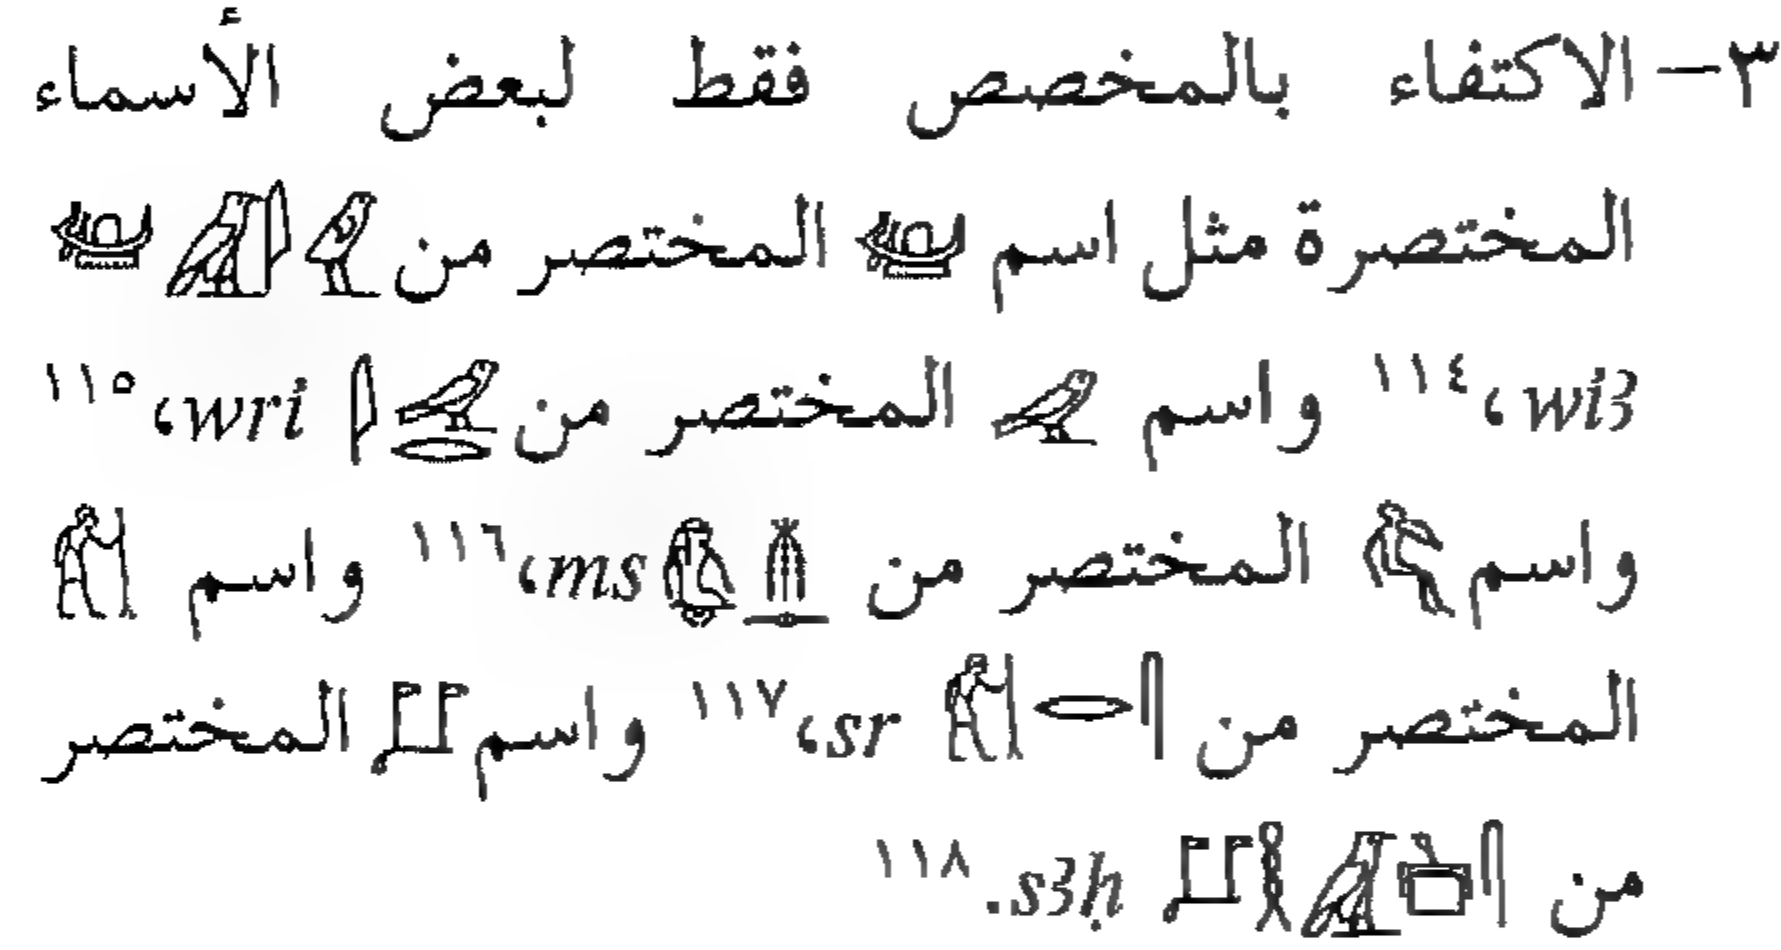 ٣- الاكتفاء بالمخصص فقط لبعض الأسماء
المختصرة مثل اسم المختصر من
wi3، ١١٤ واسم المختصر من wri، ١١٥
واسم المختصر من ms، ١١٦ واسم
المختصر من sr، ١١٧ واسم المختصر
من s3ḥ. ١١٨